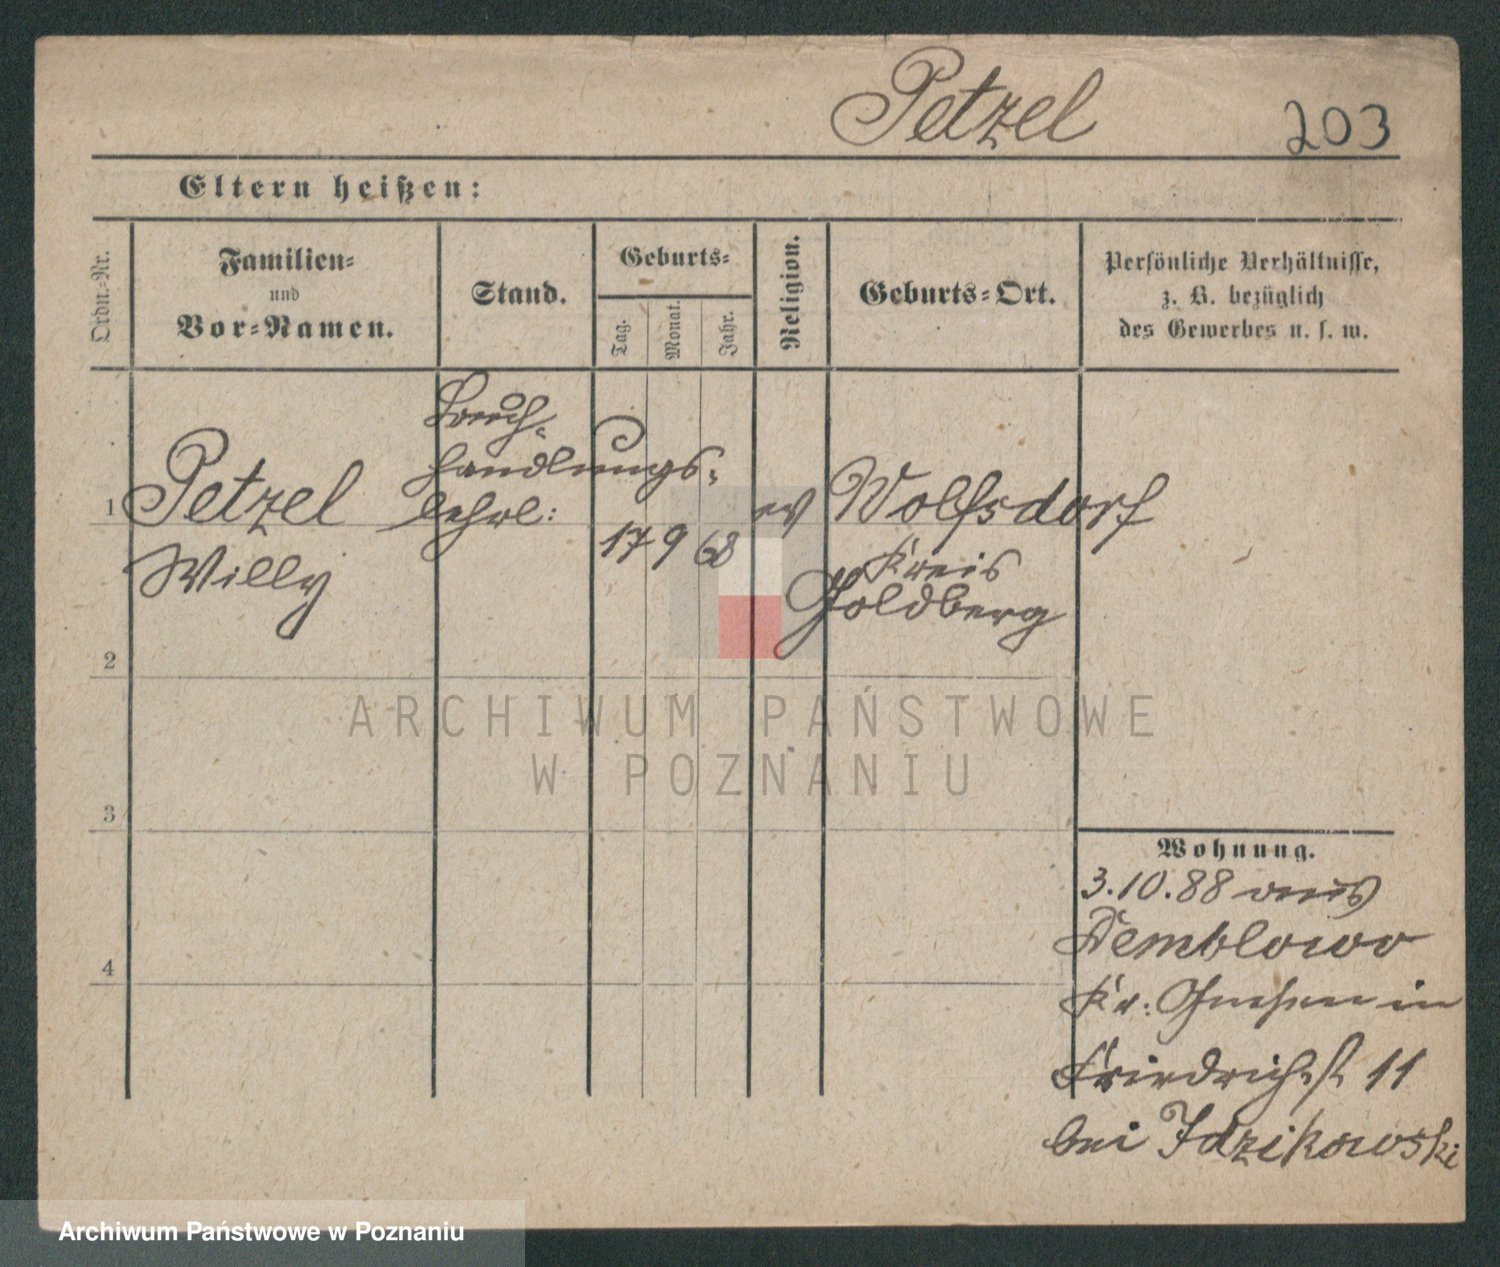 Petzel 203
Eltern heißen:
Ordn.-Nr.
Familien-
und
Vor-Namen.
Stand.
Geburts-
Tag.
Monat.
Jahr.
Religion.
Geburts-Ort.
Persönliche Verhältnisse,
z. B. bezüglich
des Gewerbes u. s. w.
1
Petzel
Willy
Buch-
handlungs-
lehrl:
17 9 68
ev
Wolfsdorf
Kreis
Goldberg
2
3
4
Wohnung.
3.10.88 aus
Demblowo
Kr. Gnesen in
Friedrichst 11
bei Idzikowski
ARCHIWUM PAŃSTWOWE
W POZNANIU
Archiwum Państwowe w Poznaniu